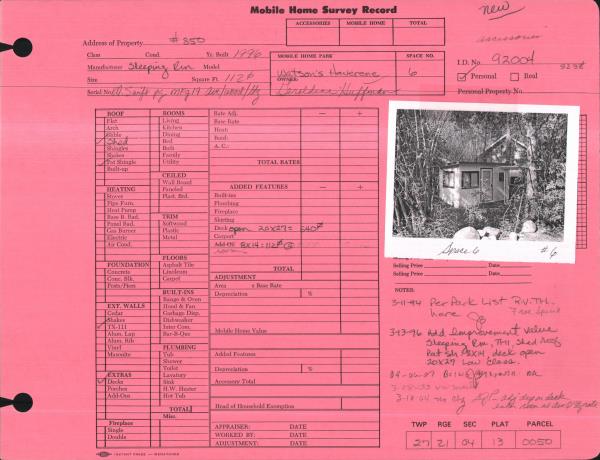 Mobile Home Survey Record
new
ACCESSORIES MOBILE HOME TOTAL
accessories
Address of Property #350
Class Cond. Yr. Built 1996
Manufacturer Sleeping Rm Model
Size Square Ft. 112¢
Serial No.
MOBILE HOME PARK SPACE NO.
Watson's Haverene 6
OWNER:
Geraldine Huffman
I.D. No. 92004
Personal Real
Personal Property No.
ROOF
Flat
Arch
Gable
Shed
Shingles
Shakes
Pat Shingle
Built-up
HEATING
Stove
Pipe Furn.
Heat Pump
Base B. Rad.
Panel Rad.
Gas Burner
Electric
Air Cond.
FOUNDATION
Concrete
Conc. Blk.
Posts/Piers
EXT. WALLS
Cedar
Shakes
TX-111
Alum. Lap
Alum. Rib
Vinyl
Masonite
EXTRAS
Decks
Porches
Add-Ons
Fireplace
Single
Double
ROOMS
Living
Kitchen
Dining
Bed
Bath
Family
Utility
CEILED
Wall Board
Paneled
Plast. Brd.
TRIM
Softwood
Plastic
Metal
FLOORS
Asphalt Tile
Linoleum
Carpet
BUILT-INS
Range & Oven
Hood & Fan
Garbage Disp.
Dishwasher
Inter Com.
Bar-B-Que
PLUMBING
Tub
Shower
Toilet
Lavatory
Sink
H.W. Heater
Hot Tub
TOTAL
Misc.
Rate Adj. — +
Base Rate
Heat:
Roof:
A. C.:
TOTAL RATES
ADDED FEATURES — +
Built-ins
Plumbing
Fireplace
Skirting
Deck open 20x27= 540¢
Carport
Add-On 8x14=112¢
room
TOTAL
ADJUSTMENT
Area x Base Rate
Depreciation %
Mobile Home Value
Added Features
Depreciation %
Accessory Total
Head of Household Exemption
APPRAISER: DATE
WORKED BY: DATE
ADJUSTMENT: DATE
Space 6 #6
Selling Price Date
Selling Price Date
NOTES:
3-11-94 Per Park List RV.TH.
here Free Space
3-13-96 Add Improvement Value
Sleeping Rm, T-11, Shed Roof
Pat Sh. 8x14 deck open
20x27 Low Class.
TWP RGE SEC PLAT PARCEL
27 21 04 13 0050
INSTANT PRESS — WENATCHEE